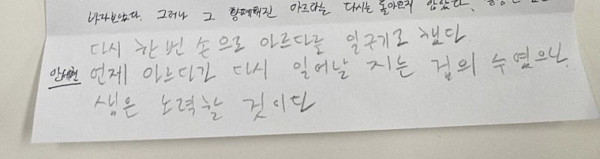 나타났다. 그러나 그 황폐해진 아르다는 다시는 돌아오지 않았다.
다시 한번 손으로 아르다를 일구기로 했다.
언제 아르다가 다시 일어날 지는 겁의 수였으나,
생은 노력할 것이다